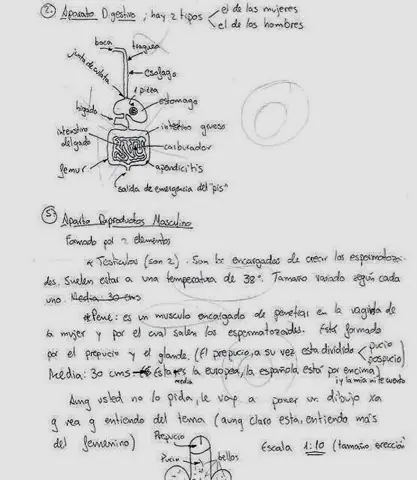 2. Aparato Digestivo ; hay 2 tipos
el de las mujeres
el de los hombres
boca
traquea
junta de culata
esofago
1 pizza
estomago
higado
intestino grueso
intenstino
delgado
carburador
femur
apendicitis
salida de emergencia del "pis"
5. Aparato Reproductor Masculino
Formado pol 2 elementos
* Testiculos (son 2). Son los encargados de crear los espermatozoi-
des. Suelen estar a una temperatura de 32º. Tamaño variado según cada
uno. Media: 30 cms
* Pene: es un musculo encargado de penetrar en la vagina de
la mujer y por el cual salen los espermatozoides. Está formado
por el prepucio y el glande. (El prepucio, a su vez esta dividido
pucio
pospucio)
Media: 30 cms Esta es la europea, la española está por encima)
media
¡y la mia ni te cuento
Aunq usted no lo pida, le voy a poner un dibujo xa
q vea q entiendo del tema (aunq claro esta, entiendo más
del femenino)
Prepucio
Pucio
bellos
Escala 1:10 (tamaño erección